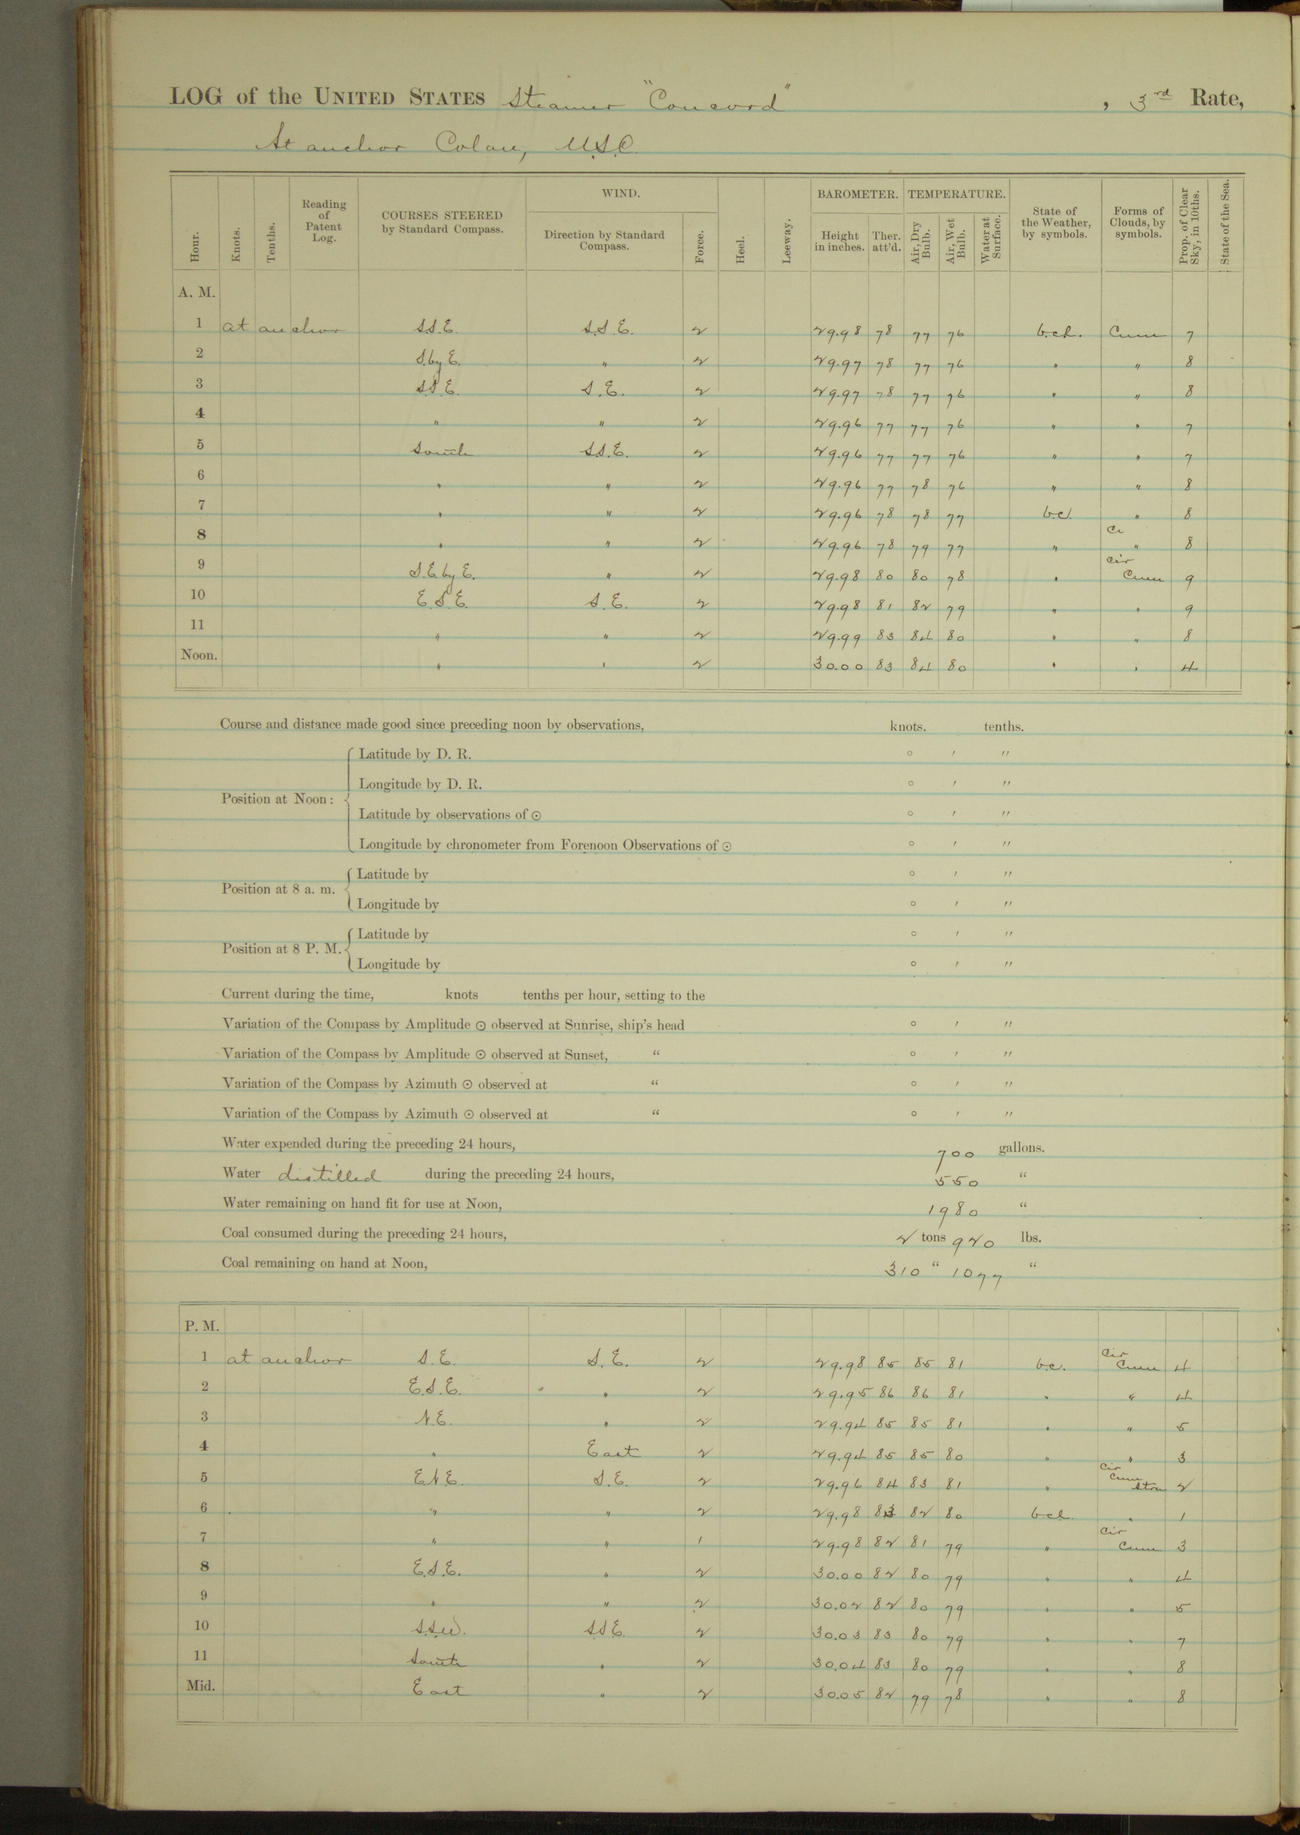 LOG of the UNITED STATES Steamer "Concord", 3rd Rate,
At anchor Colon, U.S.C.
Hour. Knots. Tenths. Reading of Patent Log. COURSES STEERED by Standard Compass. WIND. Direction by Standard Compass. Force. Heel. Leeway. BAROMETER. Height in inches. Ther. att'd. TEMPERATURE. Air, Dry Bulb. Air, Wet Bulb. Water at Surface. State of the Weather, by symbols. Forms of Clouds, by symbols. Prop. of Clear Sky, in 10ths. State of the Sea.
A. M.
1 at anchor S.S.E. S.S.E. 2 29.98 78 77 76 b.c.l. Cum 7
2 S.by E. " 2 29.97 78 77 76 " " 8
3 S.S.E. S.E. 2 29.97 78 77 76 " " 8
4 " " 2 29.96 77 77 76 " " 7
5 South S.S.E. 2 29.96 77 77 76 " " 7
6 " " 2 29.96 77 78 76 " " 8
7 " " 2 29.96 78 78 77 b.c. " 8
8 " " 2 29.96 78 79 77 " Ci " 8
9 S.E. by E. " 2 29.98 80 80 78 " Cir Cum 9
10 E.S.E. S.E. 2 29.98 81 82 79 " " 9
11 " " 2 29.99 83 84 80 " " 8
Noon. " " 2 30.00 83 84 80 " " 4
Course and distance made good since preceding noon by observations, knots. tenths.
Position at Noon: Latitude by D. R. ° ′ ″
Longitude by D. R. ° ′ ″
Latitude by observations of ⊙ ° ′ ″
Longitude by chronometer from Forenoon Observations of ⊙ ° ′ ″
Position at 8 a. m. Latitude by ° ′ ″
Longitude by ° ′ ″
Position at 8 P. M. Latitude by ° ′ ″
Longitude by ° ′ ″
Current during the time, knots tenths per hour, setting to the
Variation of the Compass by Amplitude ⊙ observed at Sunrise, ship's head ° ′ ″
Variation of the Compass by Amplitude ⊙ observed at Sunset, " ° ′ ″
Variation of the Compass by Azimuth ⊙ observed at " ° ′ ″
Variation of the Compass by Azimuth ⊙ observed at " ° ′ ″
Water expended during the preceding 24 hours, 700 gallons.
Water distilled during the preceding 24 hours, 550 "
Water remaining on hand fit for use at Noon, 1980 "
Coal consumed during the preceding 24 hours, 2 tons 920 lbs.
Coal remaining on hand at Noon, 310 " 1077 "
P. M.
1 at anchor S.E. S.E. 2 29.98 85 85 81 b.c. Cir Cum 4
2 E.S.E. " 2 29.95 86 86 81 " " 4
3 N.E. " 2 29.94 85 85 81 " " 5
4 " East 2 29.94 85 85 80 " " 3
5 E.N.E. S.E. 2 29.96 84 83 81 " Cir Cum Stra 2
6 " " 2 29.98 83 82 80 b.c.l. " 1
7 " " 1 29.98 82 81 79 " Cir Cum 3
8 E.S.E. " 2 30.00 82 80 79 " " 4
9 " " 2 30.02 82 80 79 " " 5
10 S.S.W. S.S.E. 2 30.03 83 80 79 " " 7
11 South " 2 30.04 83 80 79 " " 8
Mid. East " 2 30.05 82 79 78 " " 8